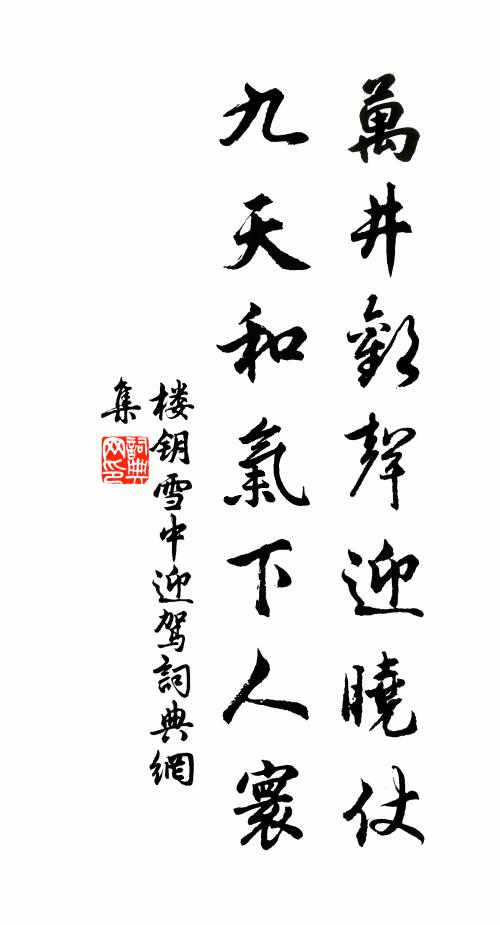 萬井歡聲迎曉仗
九天和氣下人寰
楼钥雪中迎駕詞典網
集
詞典網印